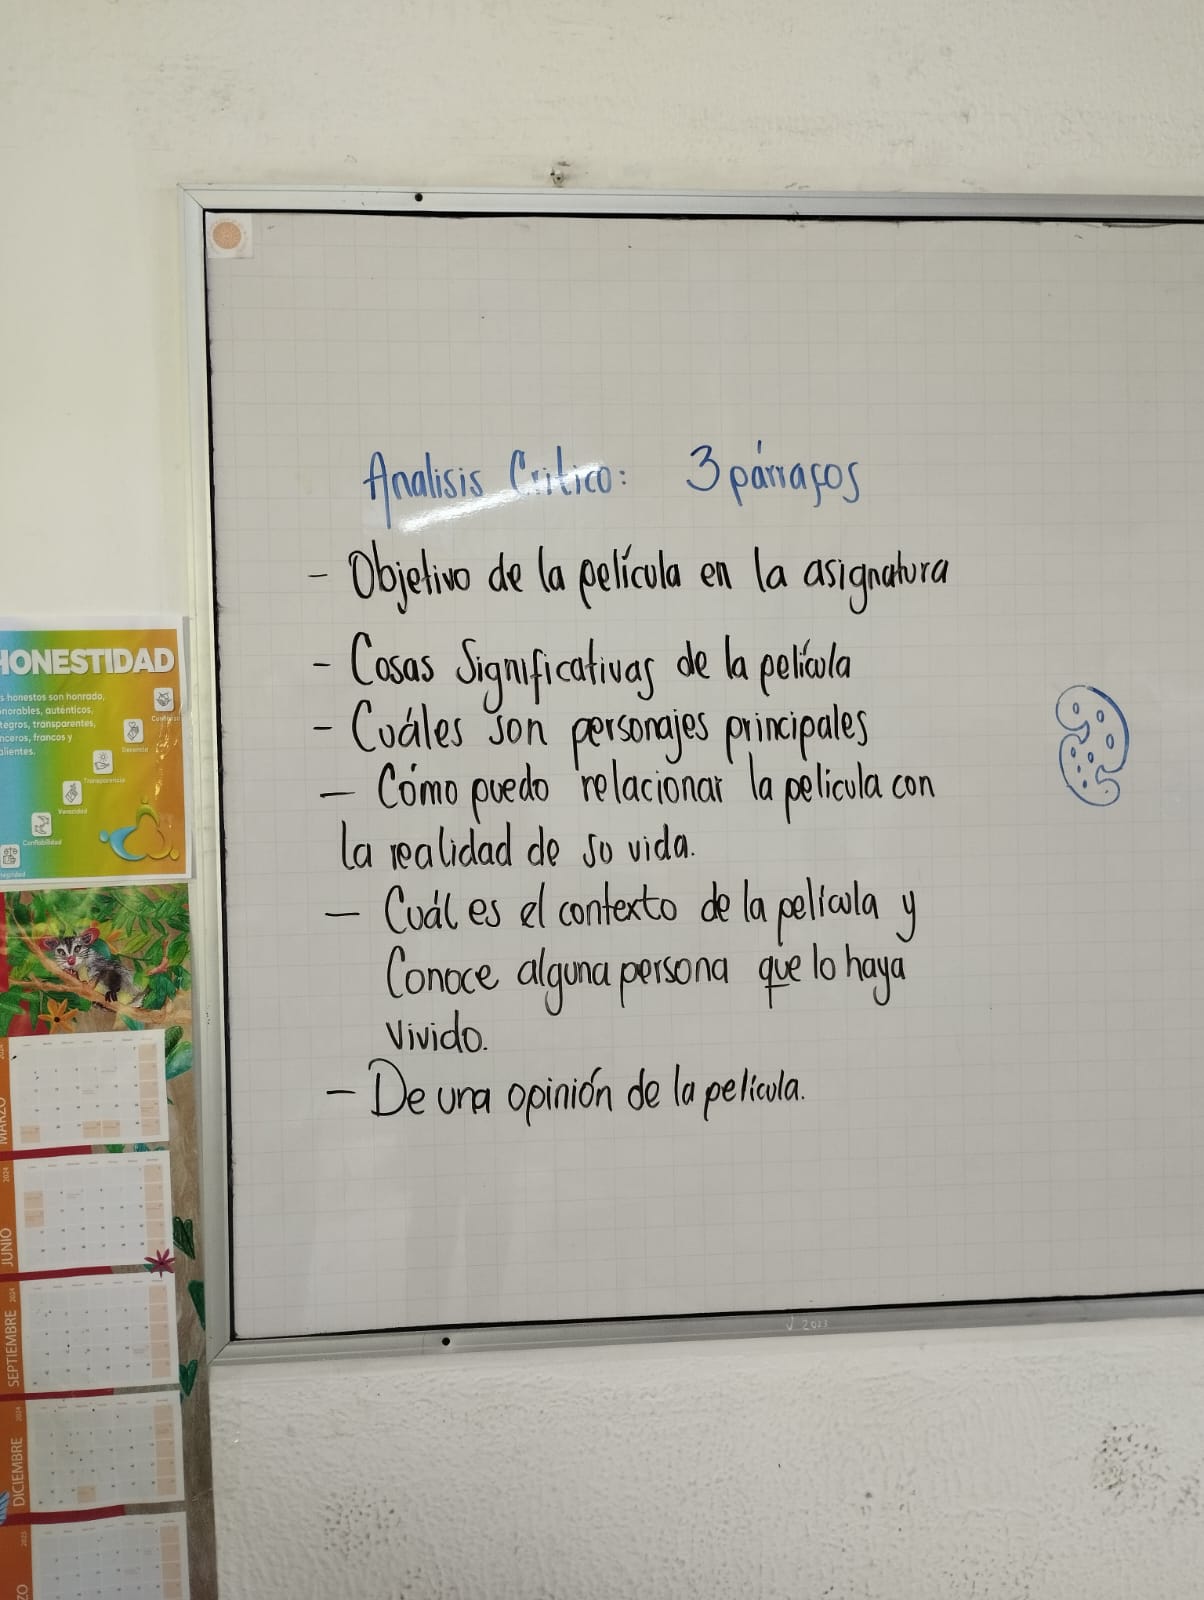 Analisis Critico: 3 párrafos
- Objetivo de la película en la asignatura
- Cosas Significativas de la película
- Cuáles son personajes principales
- Cómo puedo relacionar la pelicula con
la realidad de su vida.
- Cuál es el contexto de la película y
Conoce alguna persona que lo haya
vivido.
- De una opinión de la pelicula.
HONESTIDAD
s honestos son honrado,
norables, auténticos,
tegros, transparentes,
nceros, francos y
alientes.
Decencia
Transparencia
Veracidad
Confiabilidad
tegridad
MARZO
2024
JUNIO
2024
SEPTIEMBRE
2024
DICIEMBRE
2025
ZO
2023